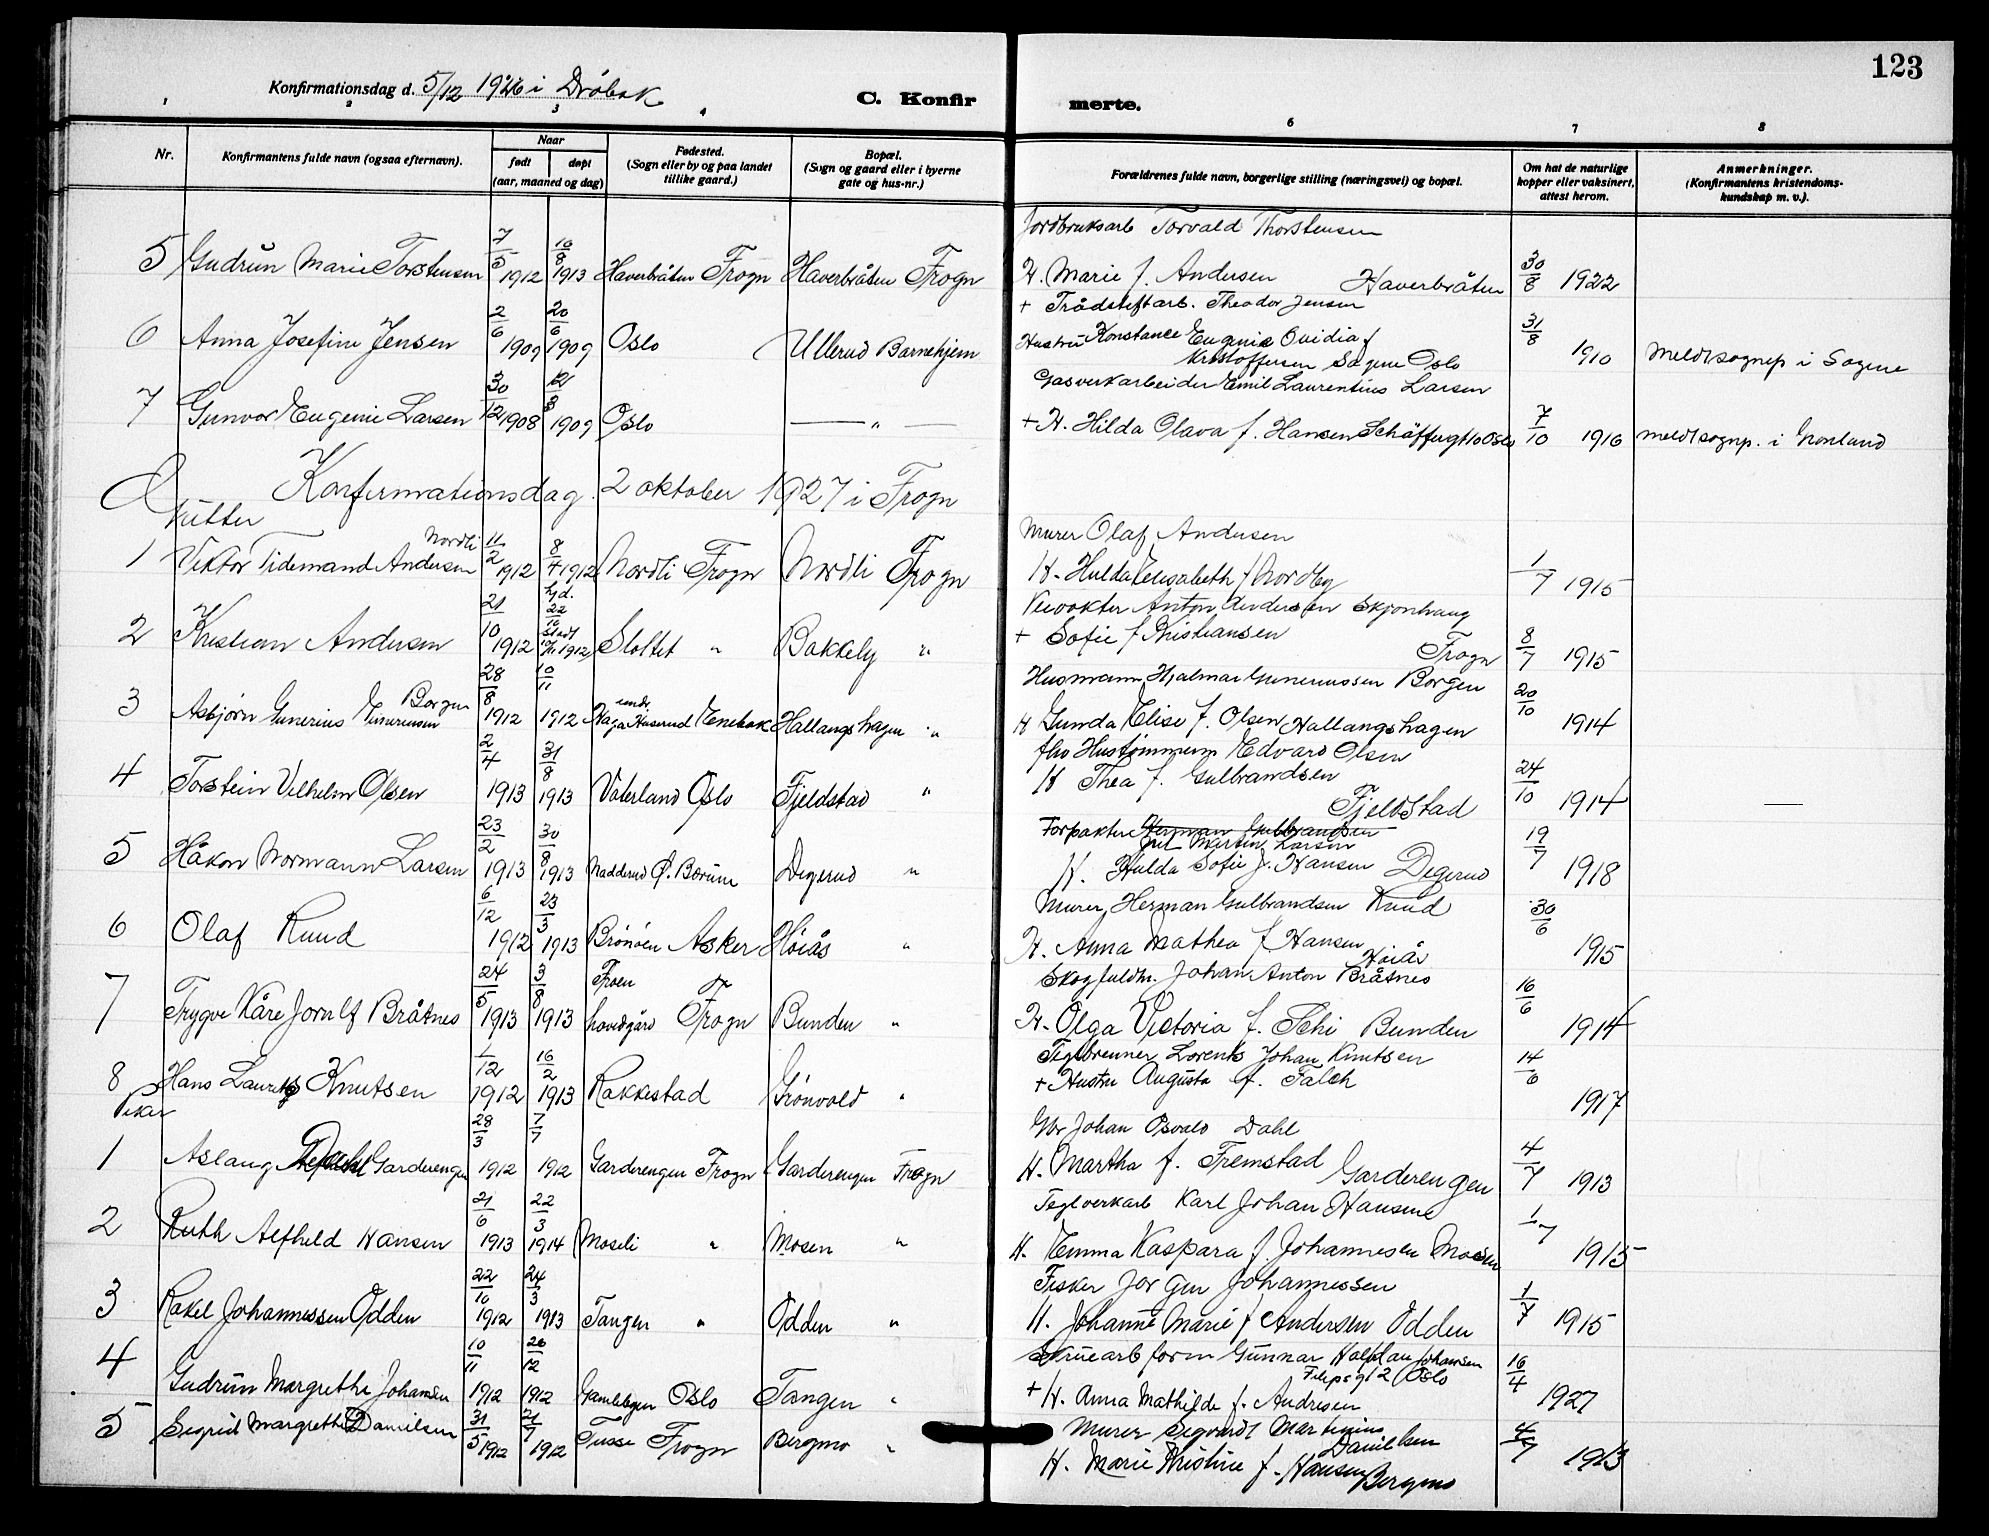 123
Konfirmationsdag d. 5/12 1926 i Dröbak
C. Konfirmerte.
1 2 3 4 6 7 8
Nr.
Konfirmantens fulde navn (ogsaa efternavn).
Naar
født døpt
(aar, maaned og dag)
Fødested.
(Sogn eller by og paa landet
tillike gaard.)
Bopæl.
(Sogn og gaard eller i byerne
gate og hus-nr.)
Forældrenes fulde navn, borgerlige stilling (næringsvei) og bopæl.
Om hat de naturlige
kopper eller vaksinert,
attest herom.
Anmerkninger.
(Konfirmantens kristendoms-
kundskap m. v.).
Jordbruksarb Torvald Thorstensen
5 Gudrun Marie Torstensen 7/5 1912 10/8 1913 Haverbråten Frogn Haverbråten Frogn H. Marie f. Andersen Haverbråten 30/8 1922
+ Trådstiftarb. Theodor Jensen
6 Anna Josefine Jensen 2/6 1909 20/6 1909 Oslo Ullerud Barnehjem Hustru Konstance Eugenie Ovidia f 31/8 1910 Meldt sognep i Sagene
Kristoffersen Sagene Oslo
Gasverkarbeider Emil Laurentius Larsen
7 Gunvor Eugenie Larsen 30/12 1908 1909 Oslo — " — + H. Hilda Olava f. Hansen Oslo 7/10 1916 meldt sognep. i Grønland
Konfirmationsdag 2 oktober 1927 i Frogn
Gutter
Murer Olaf Andersen
1 Viktor Tidemand Andersen Nordli 11/2 1912 8/4 1912 Nordli Frogn Nordli Frogn H. Hulda Elisabeth f Nordby 1/7 1915
Anton Andersen Skjønhaug
2 Kristian Andersen 21/10 1912 hjd. 22/10 stadf 1912 Slottet " Bakkely " + Sofie f Kristiansen Frogn 8/7 1915
Husmann Hjalmar Gunerussen Borgen
3 Asbjörn Gunerius Gunerussen Borgen 28/8 1912 10/11 1912 Enebak Hallangshagen " H Gunda Elise f. Olsen Hallangshagen 20/10 1914
fhv Hustømmerm Edvard Olsen
4 Torstein Vilhelm Olsen 2/4 1913 31/8 1913 Vaterland Oslo Fjeldstad " H Thea f. Gulbrandsen 24/10 1914 —
Fjeldstad
Forpakter Herman Gulbrandsen
Martin Larsen
5 Håkon Normann Larsen 23/2 1913 30/8 1913 Nadderud Ö. Bærum Degerud " H. Hulda Sofie f. Hansen Degerud 19/7 1918
Murer Herman Gulbrandsen Ruud
6 Olaf Ruud 6/12 1912 23/3 1913 Brönöen Asker Höiås " H. Anna Mathea f. Hansen 30/6 1915
Höiås
Skogfuldm. Johan Anton Bråtnes
7 Trygve Kåre Jornulf Bråtnes 24/5 1913 3/8 1913 Froen hovedgård Frogn Bunden " H. Olga Victoria f. Schi Bunden 16/6 1914
Teglbrenner Lorents Johan Knutsen
8 Hans Lauritz Knutsen 1/12 1912 16/2 1913 Rakkestad Grönvold " + Hustru Augusta f. Falch 14/6 1917
Piker
Gbr Johan Osvald Dahl
1 Aslaug Dahl Garderengen 28/3 1912 7/7 1912 Garderengen Frogn Garderengen Frogn H. Martha f. Fremstad Garderengen 4/7 1913
Teglverkarb Karl Johan Hansen
2 Ruth Alfhild Hansen 21/6 1913 22/3 1914 Moseli " Mosen " H. Emma Kaspara f. Johannesen Mosen 1/7 1915
Fisker Jörgen Johannessen
3 Rakel Johannessen Odden 22/10 1912 24/3 1913 Tangen " Odden " H. Johanne Marie f Andersen Odden 1/7 1915
Gunnar Halfdan Johansen
Filipsgt 2 Oslo
4 Gudrun Margrethe Johansen 10/11 1912 26/12 1912 Gamlebyen Oslo Tangen " + H. Anna Mathilde f. Andresen 16/4 1927
Murer Sigvardt Martinius
Danielsen
5 Sigrid Margrethe Danielsen 31/5 1912 21/7 1912 Tusse Frogn Bergmo " H. Marie Kristine f. Hansen Bergmo 4/7 1913